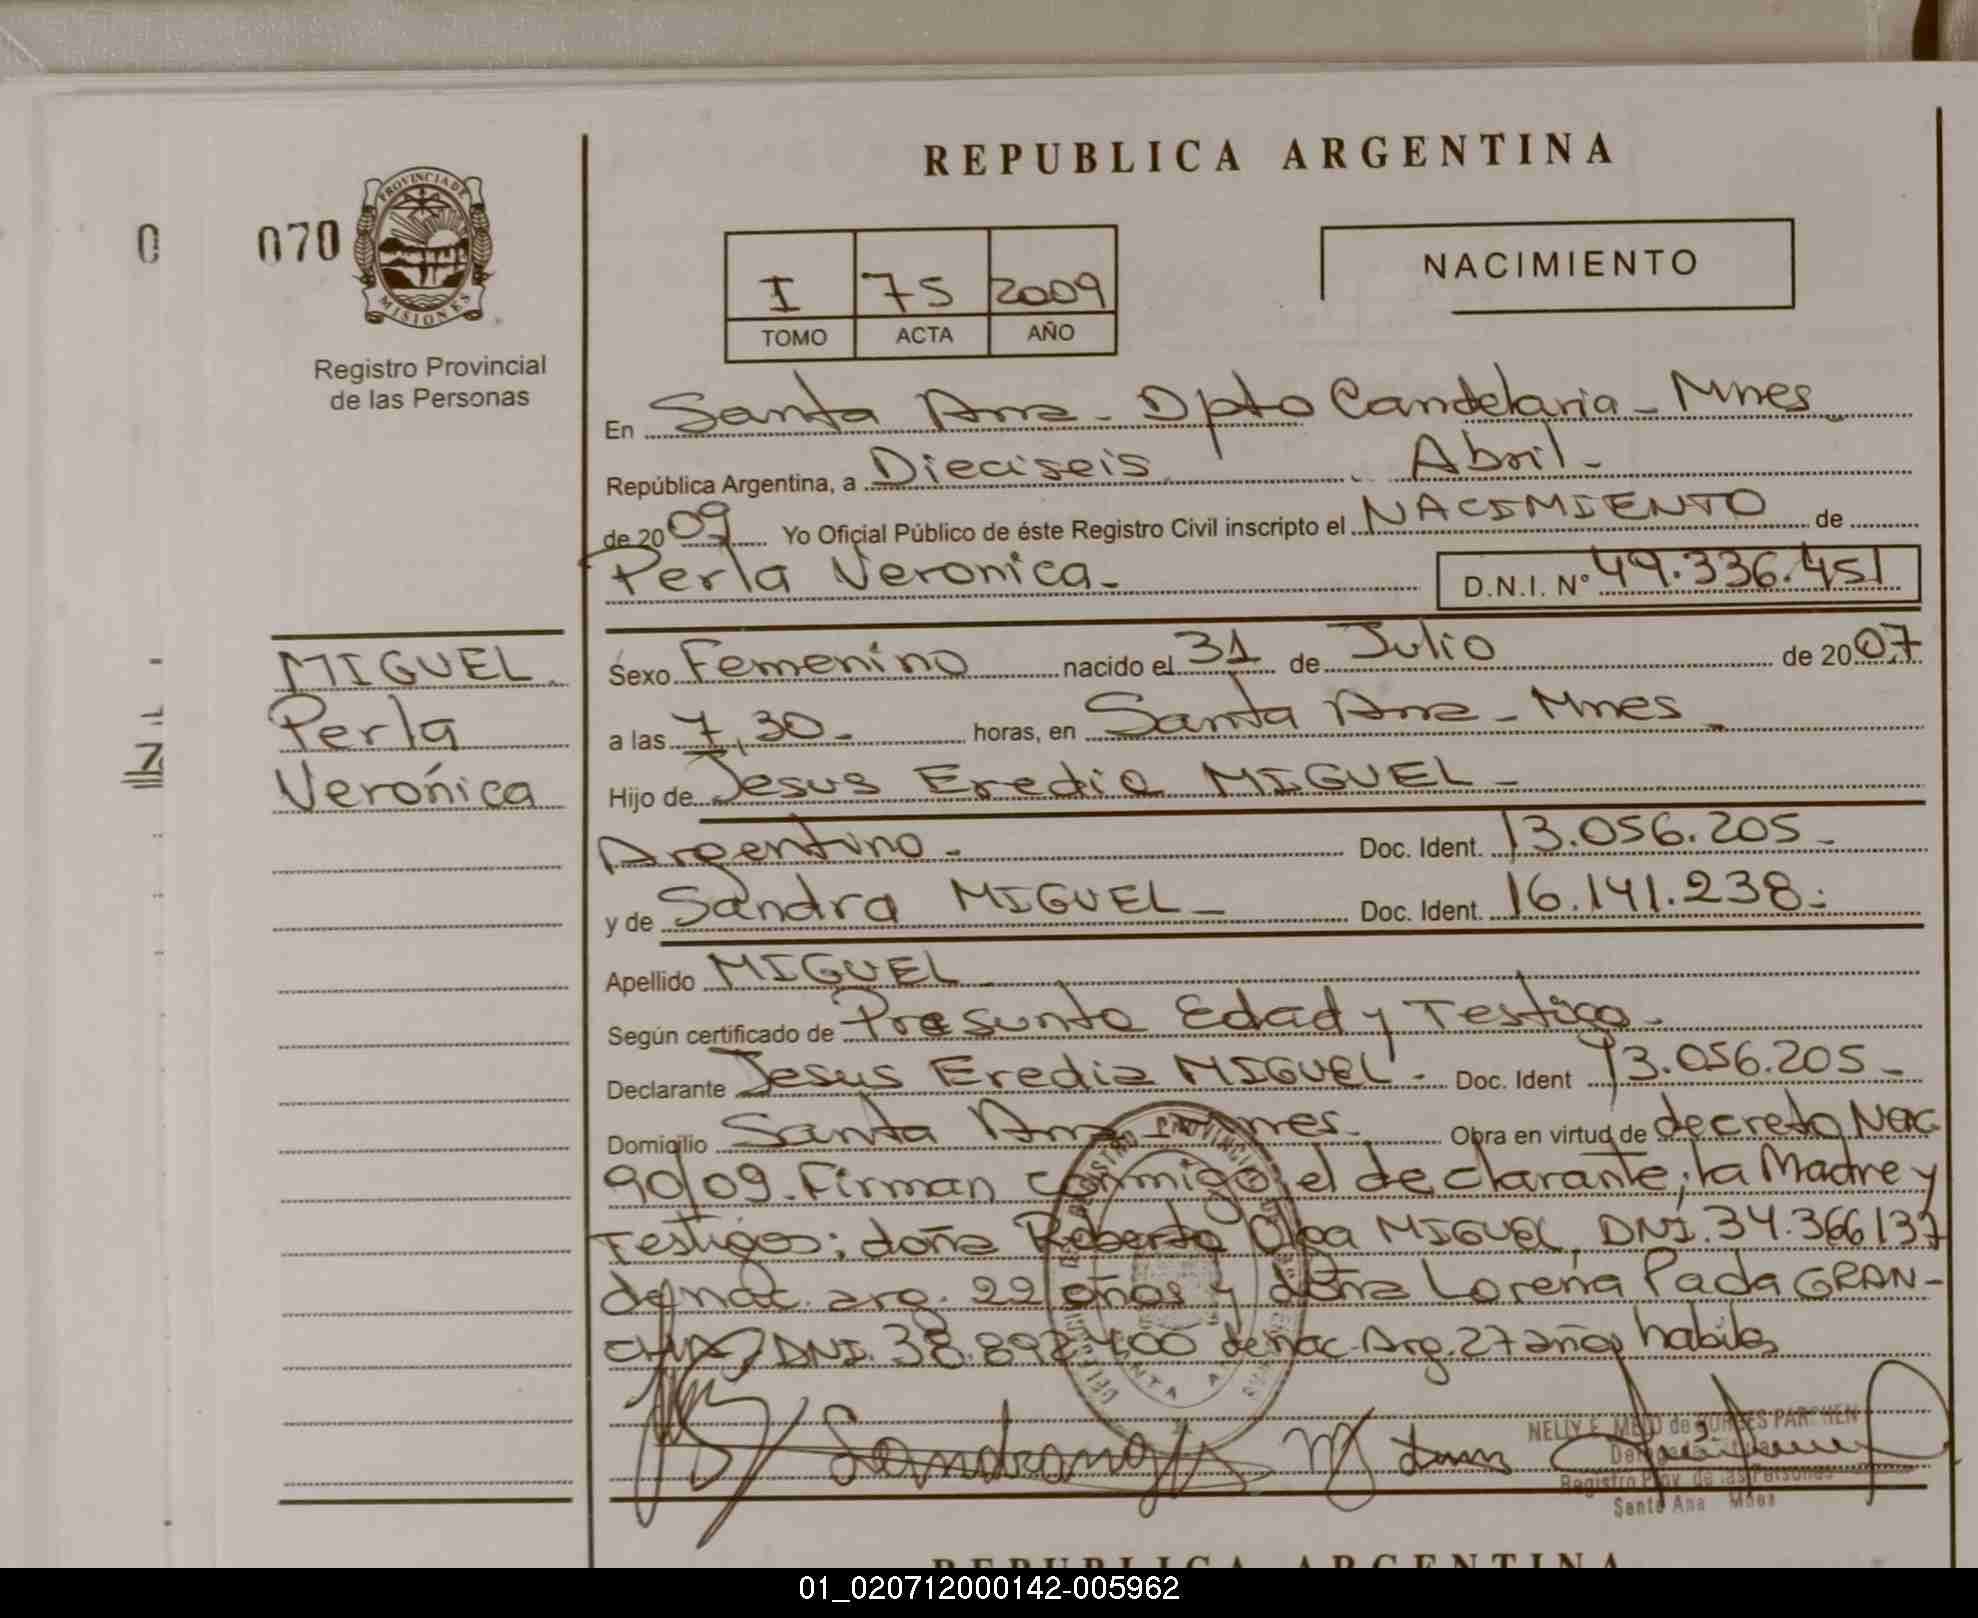 REPUBLICA ARGENTINA
PROVINCIA DE
MISIONES
0 070
NACIMIENTO
I 75 2009
TOMO ACTA AÑO
Registro Provincial
de las Personas
En Santa Ana - Dpto Candelaria - Mnes
República Argentina, a Dieciseis Abril -
de 2009 Yo Oficial Público de éste Registro Civil inscripto el NACIMIENTO de
Perla Veronica - D.N.I. Nº 49.336.451
MIGUEL
Perla
Verónica
Sexo Femenino nacido el 31 de Julio de 2007
a las 7,30 - horas, en Santa Ana - Mnes -
Hijo de Jesus Eredia MIGUEL -
Argentino - Doc. Ident. 13.056.205 -
y de Sandra MIGUEL - Doc. Ident. 16.141.238 -
Apellido MIGUEL
Según certificado de Presunta Edad y Testigo -
Declarante Jesus Eredia MIGUEL - Doc. Ident 13.056.205 -
Domicilio Santa Ana - Mnes. Obra en virtud de decreto Nac
90/09. Firman conmigo el declarante; la Madre y
Testigos: doña Roberta Olga MIGUEL, DNI. 34.366137
de nac. arg. 22 años y doña Lorena Pada GRAN-
DNI. 38.892.400 de nac. Arg. 27 años habiles
NELLY E. de BORGES
Registro Prov. de las Personas
Santa Ana Mnes
REPUBLICA ARGENTINA
01_020712000142-005962